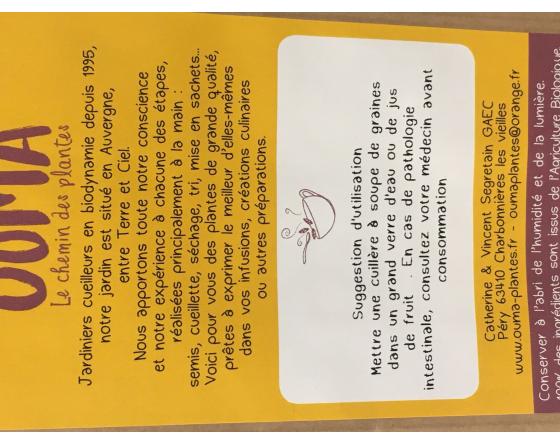 OUMA
Le chemin des plantes
Jardiniers cueilleurs en biodynamie depuis 1995,
notre jardin est situé en Auvergne,
entre Terre et Ciel.
Nous apportons toute notre conscience
et notre expérience à chacune des étapes,
réalisées principalement à la main :
semis, cueillette, séchage, tri, mise en sachets...
Voici pour vous des plantes de grande qualité,
prêtes à exprimer le meilleur d'elles-mêmes
dans vos infusions, créations culinaires
ou autres préparations.
Suggestion d'utilisation
Mettre une cuillère à soupe de graines
dans un grand verre d'eau ou de jus
de fruit . En cas de pathologie
intestinale, consultez votre médecin avant
consommation
Catherine & Vincent Segretain GAEC
Péry 63410 Charbonnières les vieilles
www.ouma-plantes.fr - oumaplantes@orange.fr
Conserver à l'abri de l'humidité et de la lumière.
100% des ingrédients sont issus de l'Agriculture Biologique